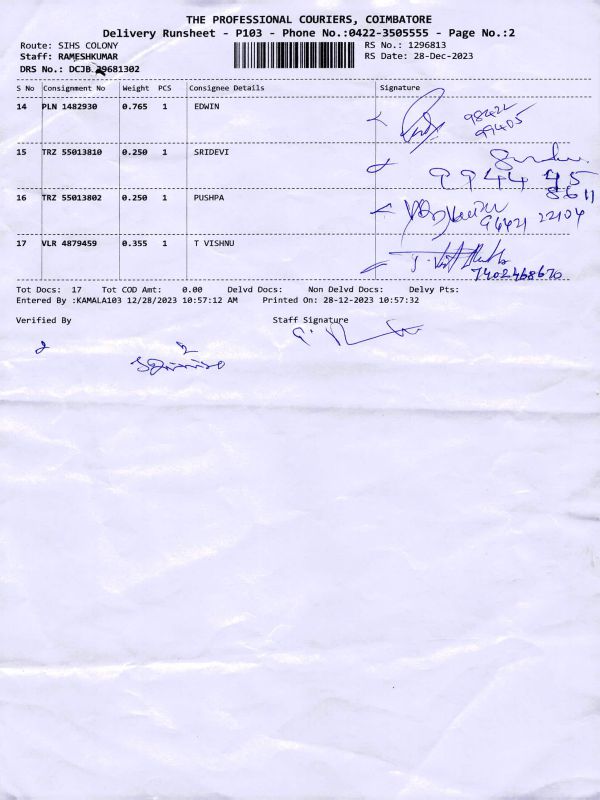 THE PROFESSIONAL COURIERS, COIMBATORE
Delivery Runsheet - P103 - Phone No.:0422-3505555 - Page No.:2
Route: SIHS COLONY RS No.: 1296813
Staff: RAMESHKUMAR RS Date: 28-Dec-2023
DRS No.: DCJB 29681302
S No Consignment No Weight PCS Consignee Details Signature
14 PLN 1482930 0.765 1 EDWIN
98422
99405
15 TRZ 55013810 0.250 1 SRIDEVI
9944 45
8611
16 TRZ 55013802 0.250 1 PUSHPA
96421 22104
17 VLR 4879459 0.355 1 T VISHNU
7402468670
Tot Docs: 17 Tot COD Amt: 0.00 Delvd Docs: Non Delvd Docs: Delvy Pts:
Entered By :KAMALA103 12/28/2023 10:57:12 AM Printed On: 28-12-2023 10:57:32
Verified By Staff Signature